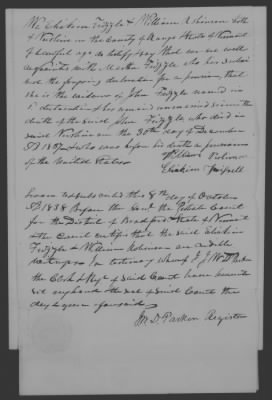 We Eliakim Frizzle & William Robinson both
of Vershire in the County of Orange State of Vermont
of lawful age do testify & say that we are well
acquainted with Martha Frizzle who has subscribed
to the foregoing declaration for a pension, that
she is the widow of John Frizzle named in
declaration & has remained unmarried since the
death of the said John Frizzle who died in
said Vershire on the 30th day of December
AD 18 who was before his death a pensioner
of the United States
William Robinson
Eliakim Frizzell
Sworn & subscribed this 8th day of October
AD 1838 Before the Hon. the Probate Court
for the District of Bradford State of Vermont
& the Court certify that the said Eliakim
Frizzle & William Robinson are credible
witnesses In testimony whereof I J. W. D. Parker
the Clerk & Reg of said Court have hereunto
set my hand & the seal of said Court the
day & year aforesaid
J. W. D. Parker Register